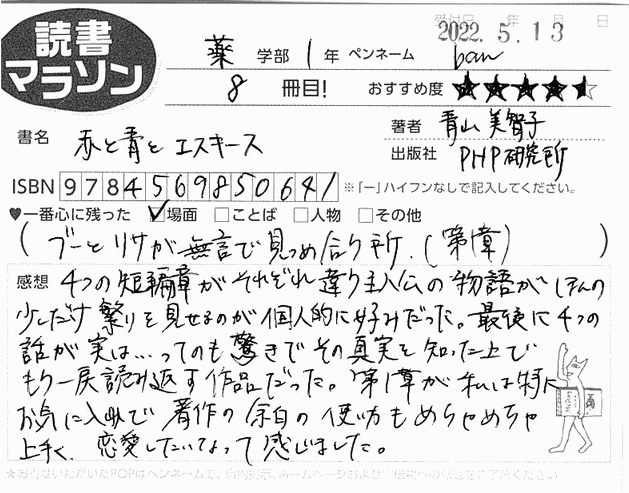 読書
マラソン
受付日 年 月 日
2022.5.13
薬 学部 1 年 ペンネーム ban
8 冊目! おすすめ度 ★★★★★
書名 赤と青とエスキース
著者 青山美智子
出版社 PHP研究所
ISBN 9784569850641 ※「-」ハイフンなしで記入してください。
♥一番心に残った ☑場面 □ことば □人物 □その他
(ブーとリサが無言で見つめ合う所.(第1章))
感想 4つの短編章がそれぞれ違う主人公の物語がほんの
少しだけ繋りを見せるのが個人的に好みだった。最後に4つの
話が実は…ってのも驚きでその真実を知った上で
もう一度読み返す作品だった。第1章が私は特に
お気に入りで著作の余白の使い方もめちゃめちゃ
上手く、恋愛したいなって感じました。